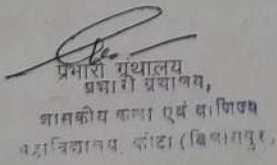 प्रभारी ग्रंथालय
प्रभारी ग्रंथालय,
शासकीय कला एवं वाणिज्य
महाविद्यालय, कोटा (बिलासपुर,